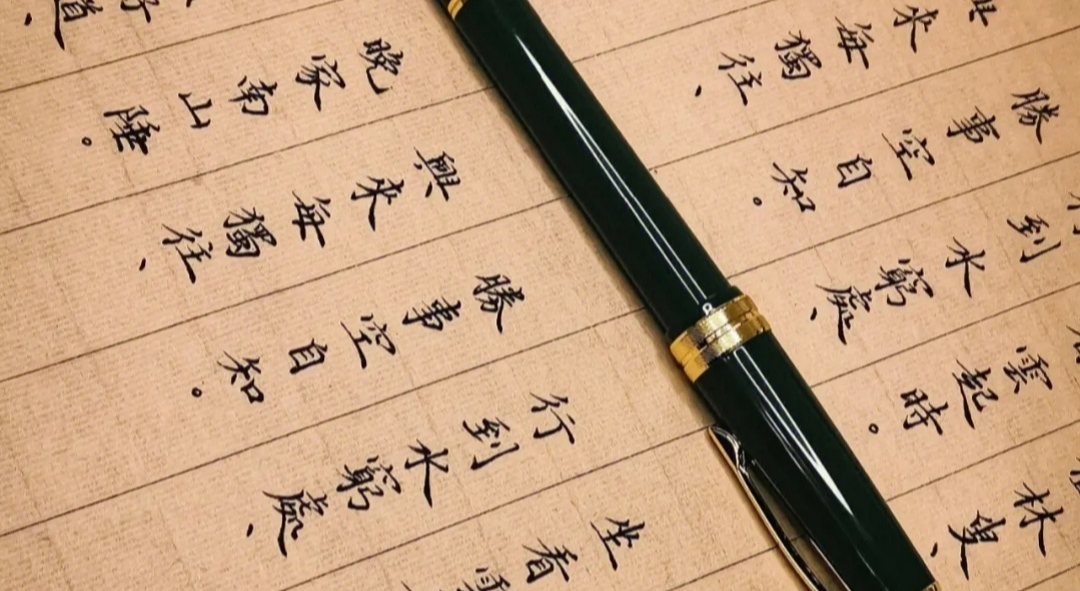 好道
晚家南山陲。
興來每獨往、
勝事空自知。
行到水窮處、
坐看雲
來每獨往、
勝事空自知。
到水窮處、
雲起時。
林叟、